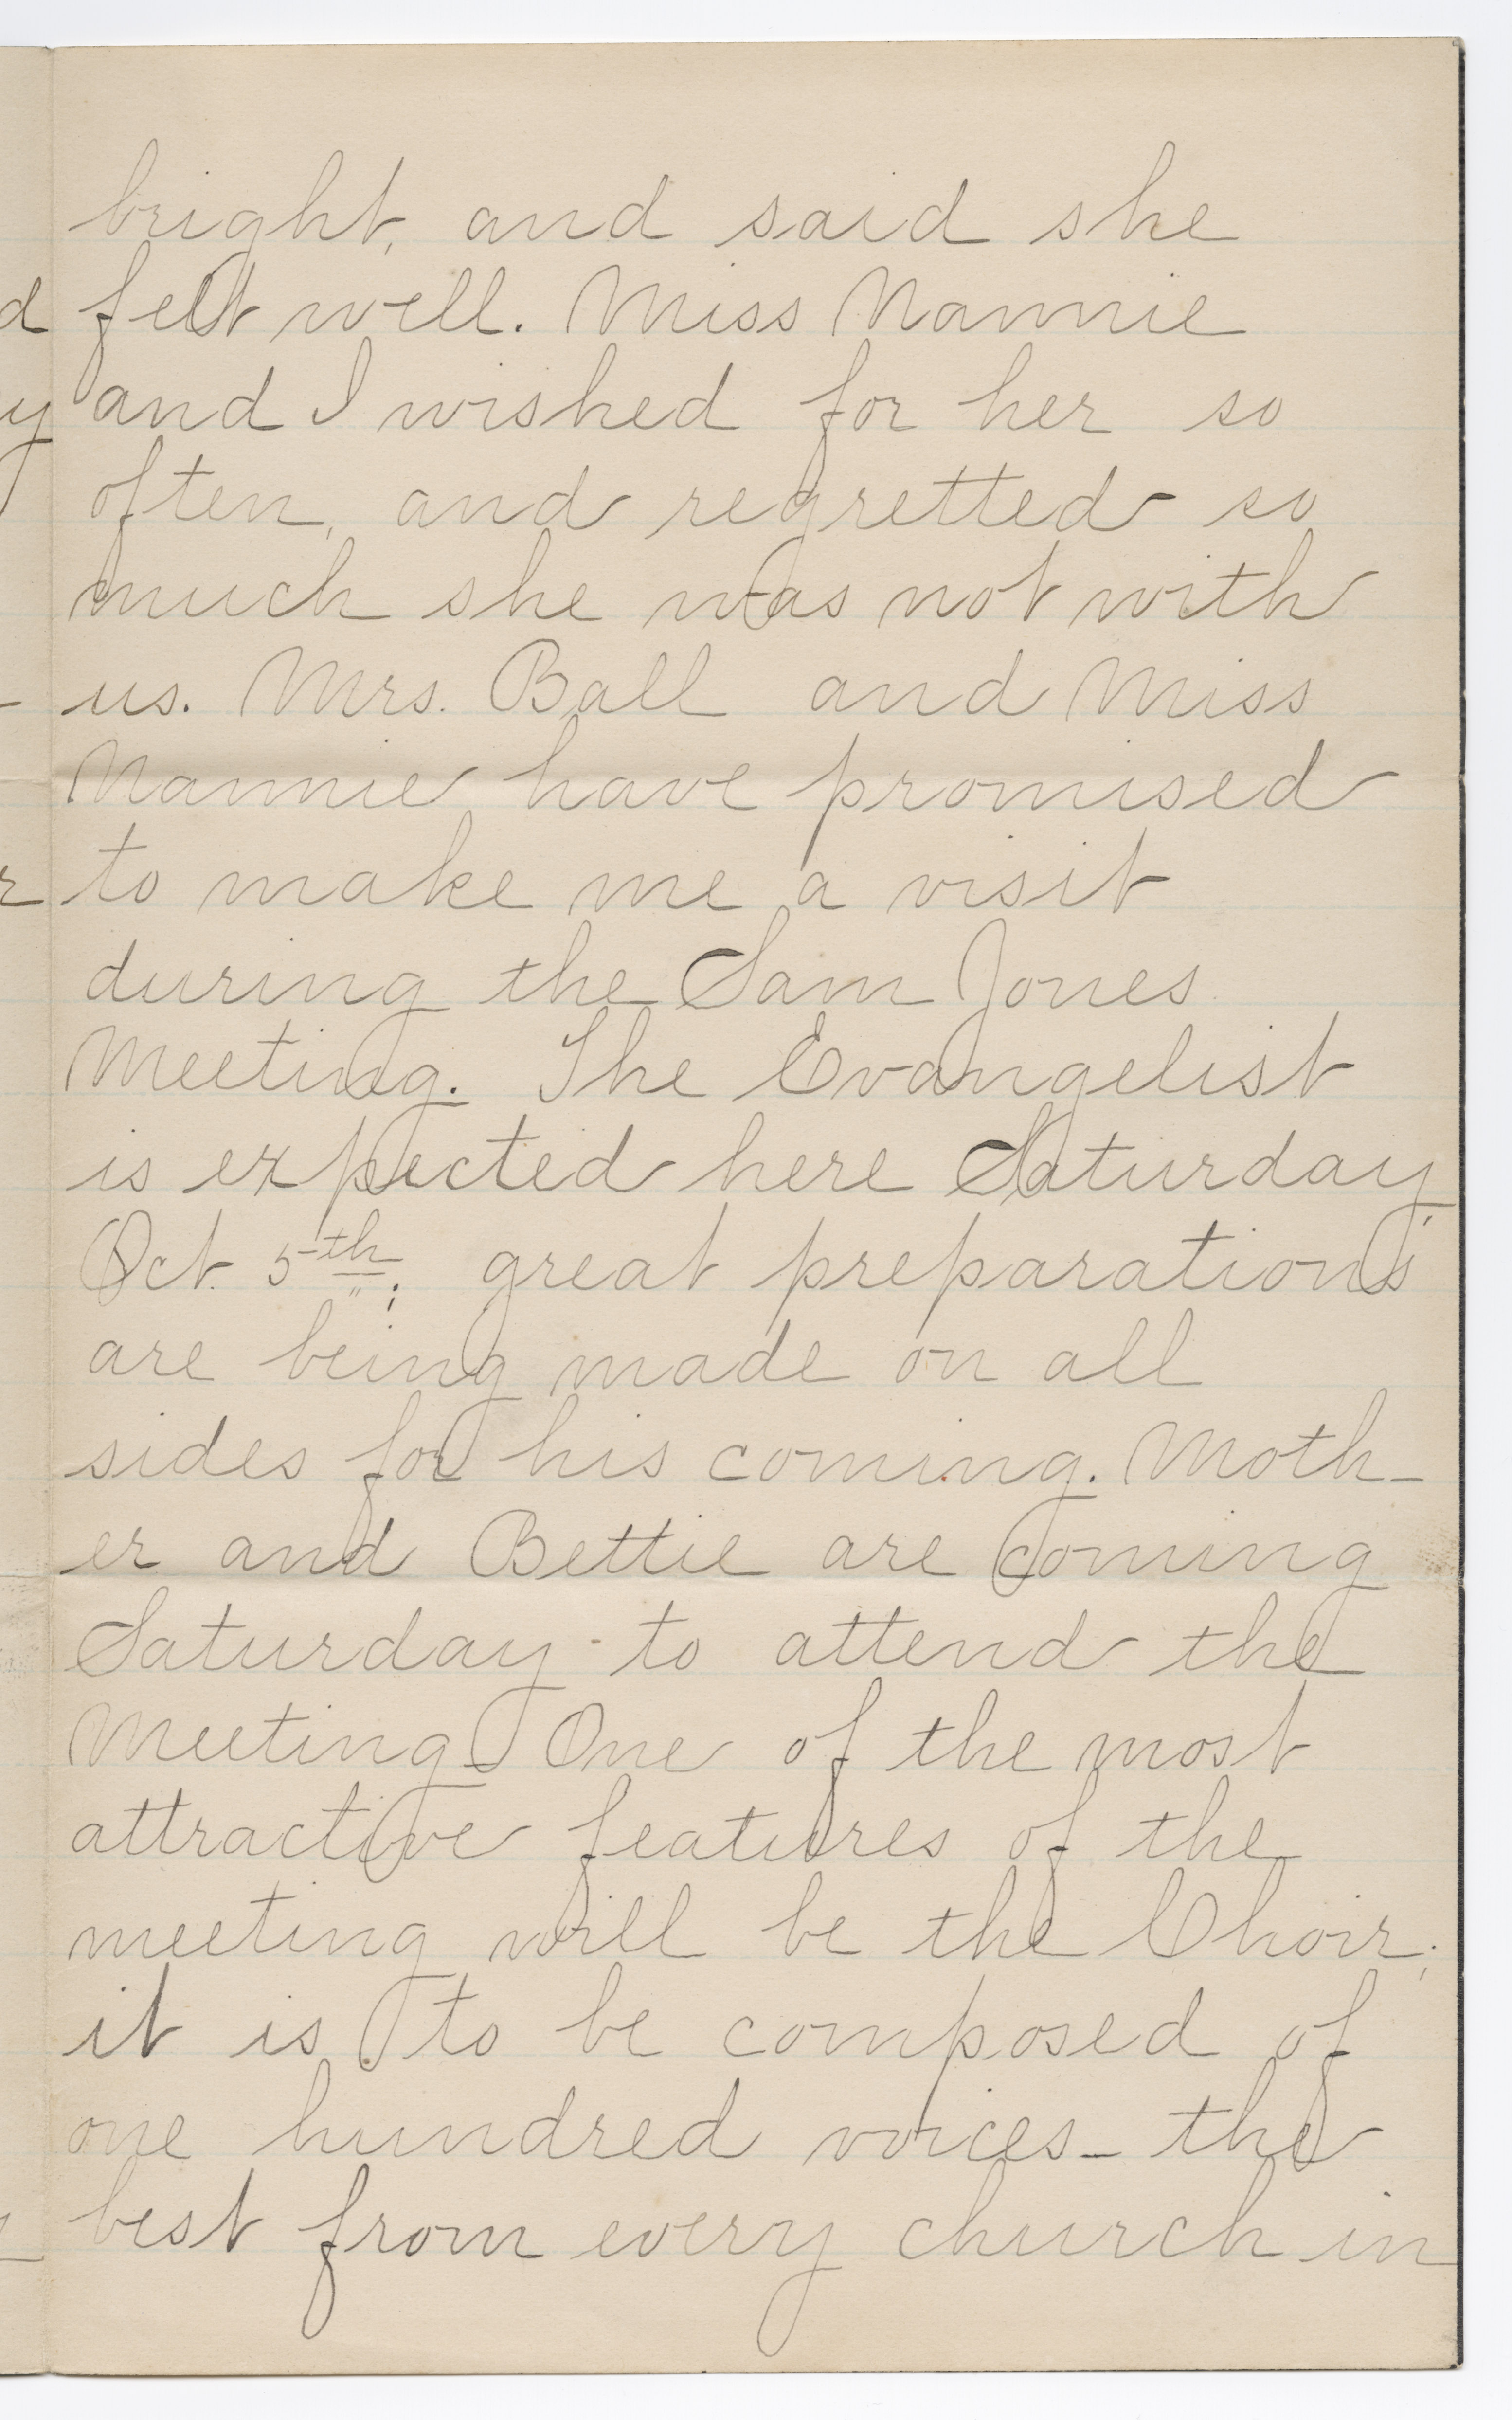 bright, and said she
felt well. Miss Nannie
and I wished for her so
often, and regretted so
much she was not with
us. Mrs. Ball and Miss
Nannie have promised
to make me a visit
during the Sam Jones
Meeting. The Evangelist
is expected here Saturday,
Oct. 5th; great preparations
are being made on all
sides for his coming. Moth-
er and Bettie are coming
Saturday to attend the
Meeting. One of the most
attractive features of the
meeting will be the Choir;
it is to be composed of
one hundred voices - the
best from every church in